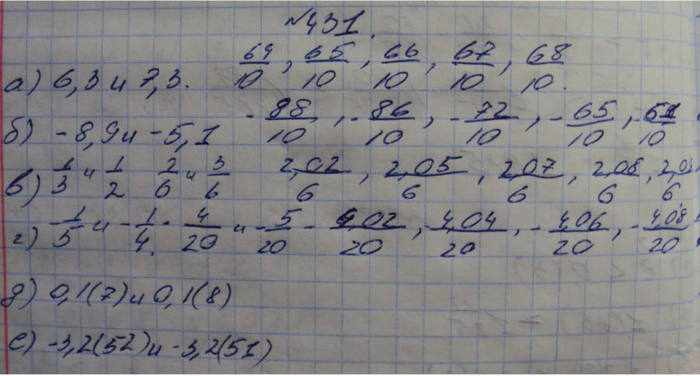 №431.
а) 6,3 и 7,3. 64/10, 65/10, 66/10, 67/10, 68/10.
б) -8,9 и -5,1 -88/10, -86/10, -72/10, -65/10, -51/10
в) 1/3 и 1/2 2/6 и 3/6 2,02/6, 2,05/6, 2,07/6, 2,08/6, 2,0
г) -1/5 и -1/4. 4/20 и -5/20 -4,02/20, 4,04/20, -4,06/20, -4,08/20
д) 0,1(7) и 0,1(8)
е) -3,2(52) и -3,2(51)